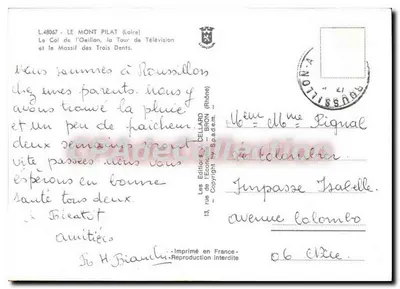 L.48067 - LE MONT PILAT (Loire)
Le Col de l'Oeillon, la Tour de Télévision
et le Massif des Trois Dents.
Nous sommes à Roussillon
chez mes parents. nous y
avons trouvé la pluie
et un peu de fraicheur
deux semaines sont
vite passées nous vous
espérons en bonne
santé tous deux.
à Bientôt
amitiés
R H Bianchi
Les Editions CELLARD
13, rue de l'Ecole BRON (Rhône)
Copyright by Spadem
Imprimé en France
Reproduction interdite
ROUSSILLON
Mme Pignal
Impasse Isabelle
avenue Colombo
06 Nice